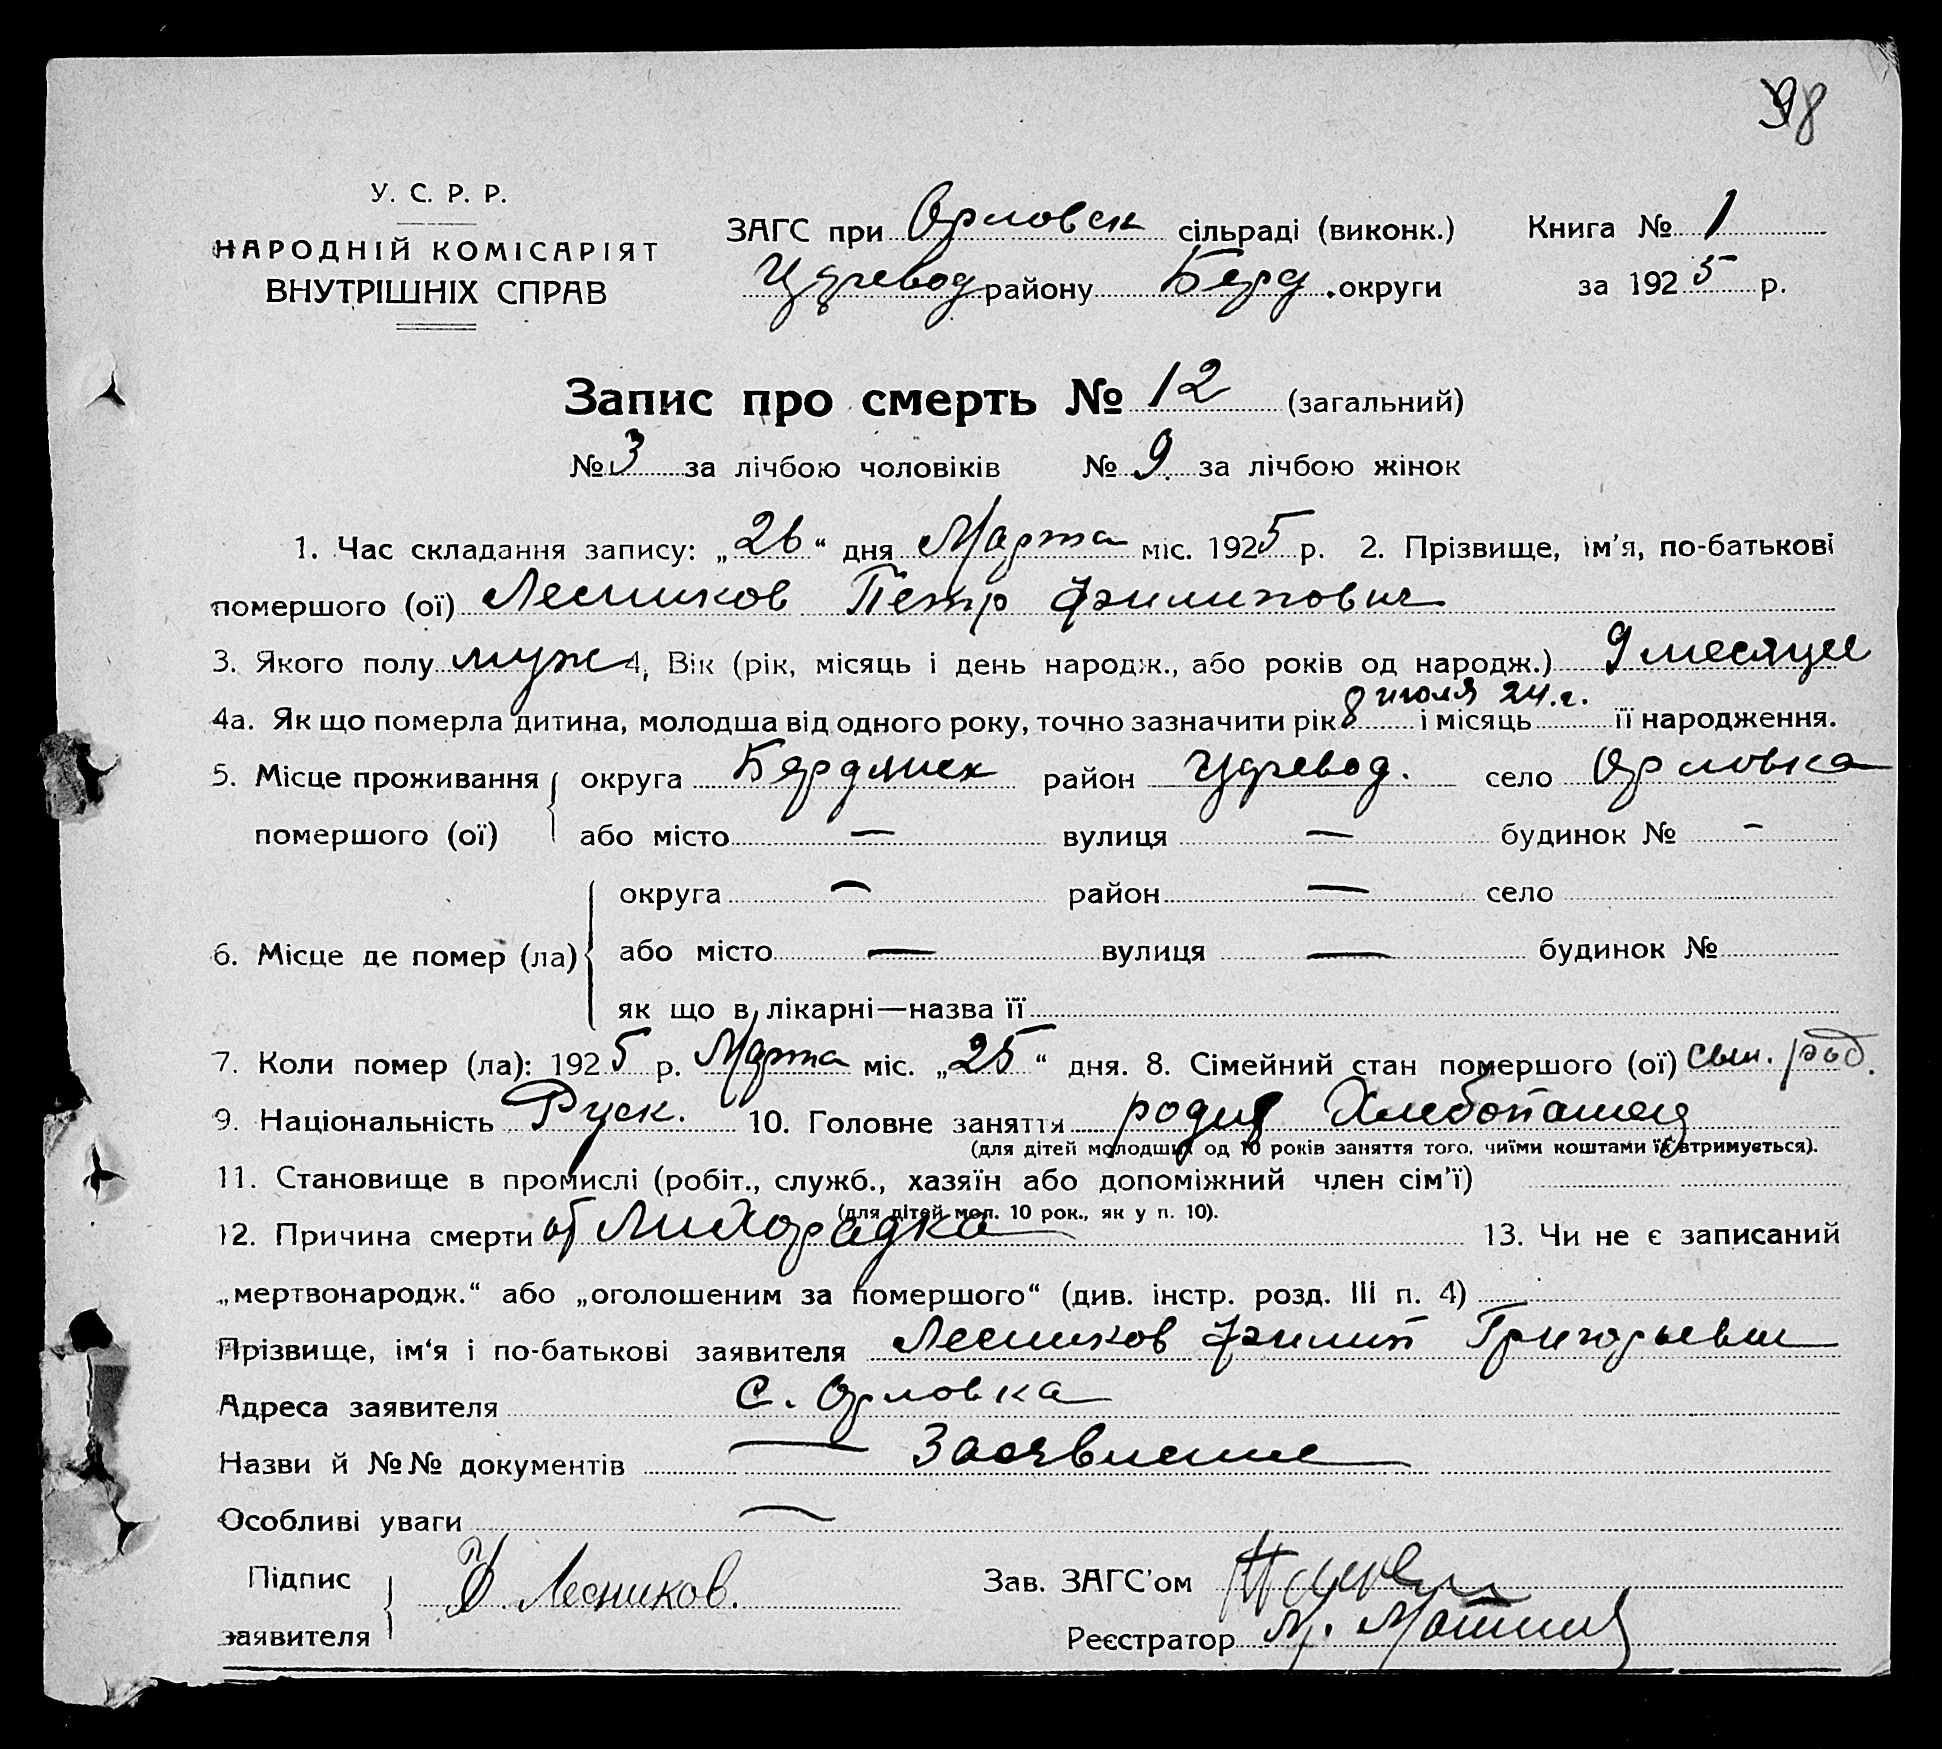 98
У. С. Р. Р.
НАРОДНІЙ КОМІСАРІЯТ
ВНУТРІШНІХ СПРАВ
ЗАГС при Орловск сільраді (виконк.) Книга № 1
Царевод району Берд. округи за 1925 р.
Запис про смерть № 12 (загальний)
№ 3 за лічбою чоловіків № 9. за лічбою жінок
1. Час складання запису: „26“ дня Марта міс. 1925 р. 2. Прізвище, ім'я, по-батькові
помершого (ої) Лесников Петр Филипович
3. Якого полу муж 4. Вік (рік, місяць і день народж., або років од народж.) 9 месяцев
4а. Як що померла дитина, молодша від одного року, точно зазначити рік 8 июля 24.г. і місяць її народження.
5. Місце проживання округа Бердянск район Царевод. село Орловка
помершого (ої) або місто — вулиця — будинок № —
округа — район — село
6. Місце де помер (ла) або місто — вулиця — будинок №
як що в лікарні—назва її
7. Коли помер (ла): 1925 р. Марта міс. „25“ дня. 8. Сімейний стан помершого (ої) сын.
9. Національність Руск. 10. Головне заняття Хлебопашец
(для дітей молодших од 10 років заняття того, чиїми коштами їх втримується).
11. Становище в промислі (робіт., служб., хазяїн або допоміжний член сім'ї)
(для дітей мол. 10 рок., як у п. 10).
12. Причина смерти от Лихорадка 13. Чи не є записаний
„мертвонародж.“ або „оголошеним за помершого“ (див. інстр. розд. III п. 4)
Прізвище, ім'я і по-батькові заявителя Лесников Филип Григорьевич
Адреса заявителя с. Орловка
Назви й №№ документів — Заявление
Особливі уваги —
Підпис
заявителя Ф. Лесников.
Зав. ЗАГС'ом
Реєстратор